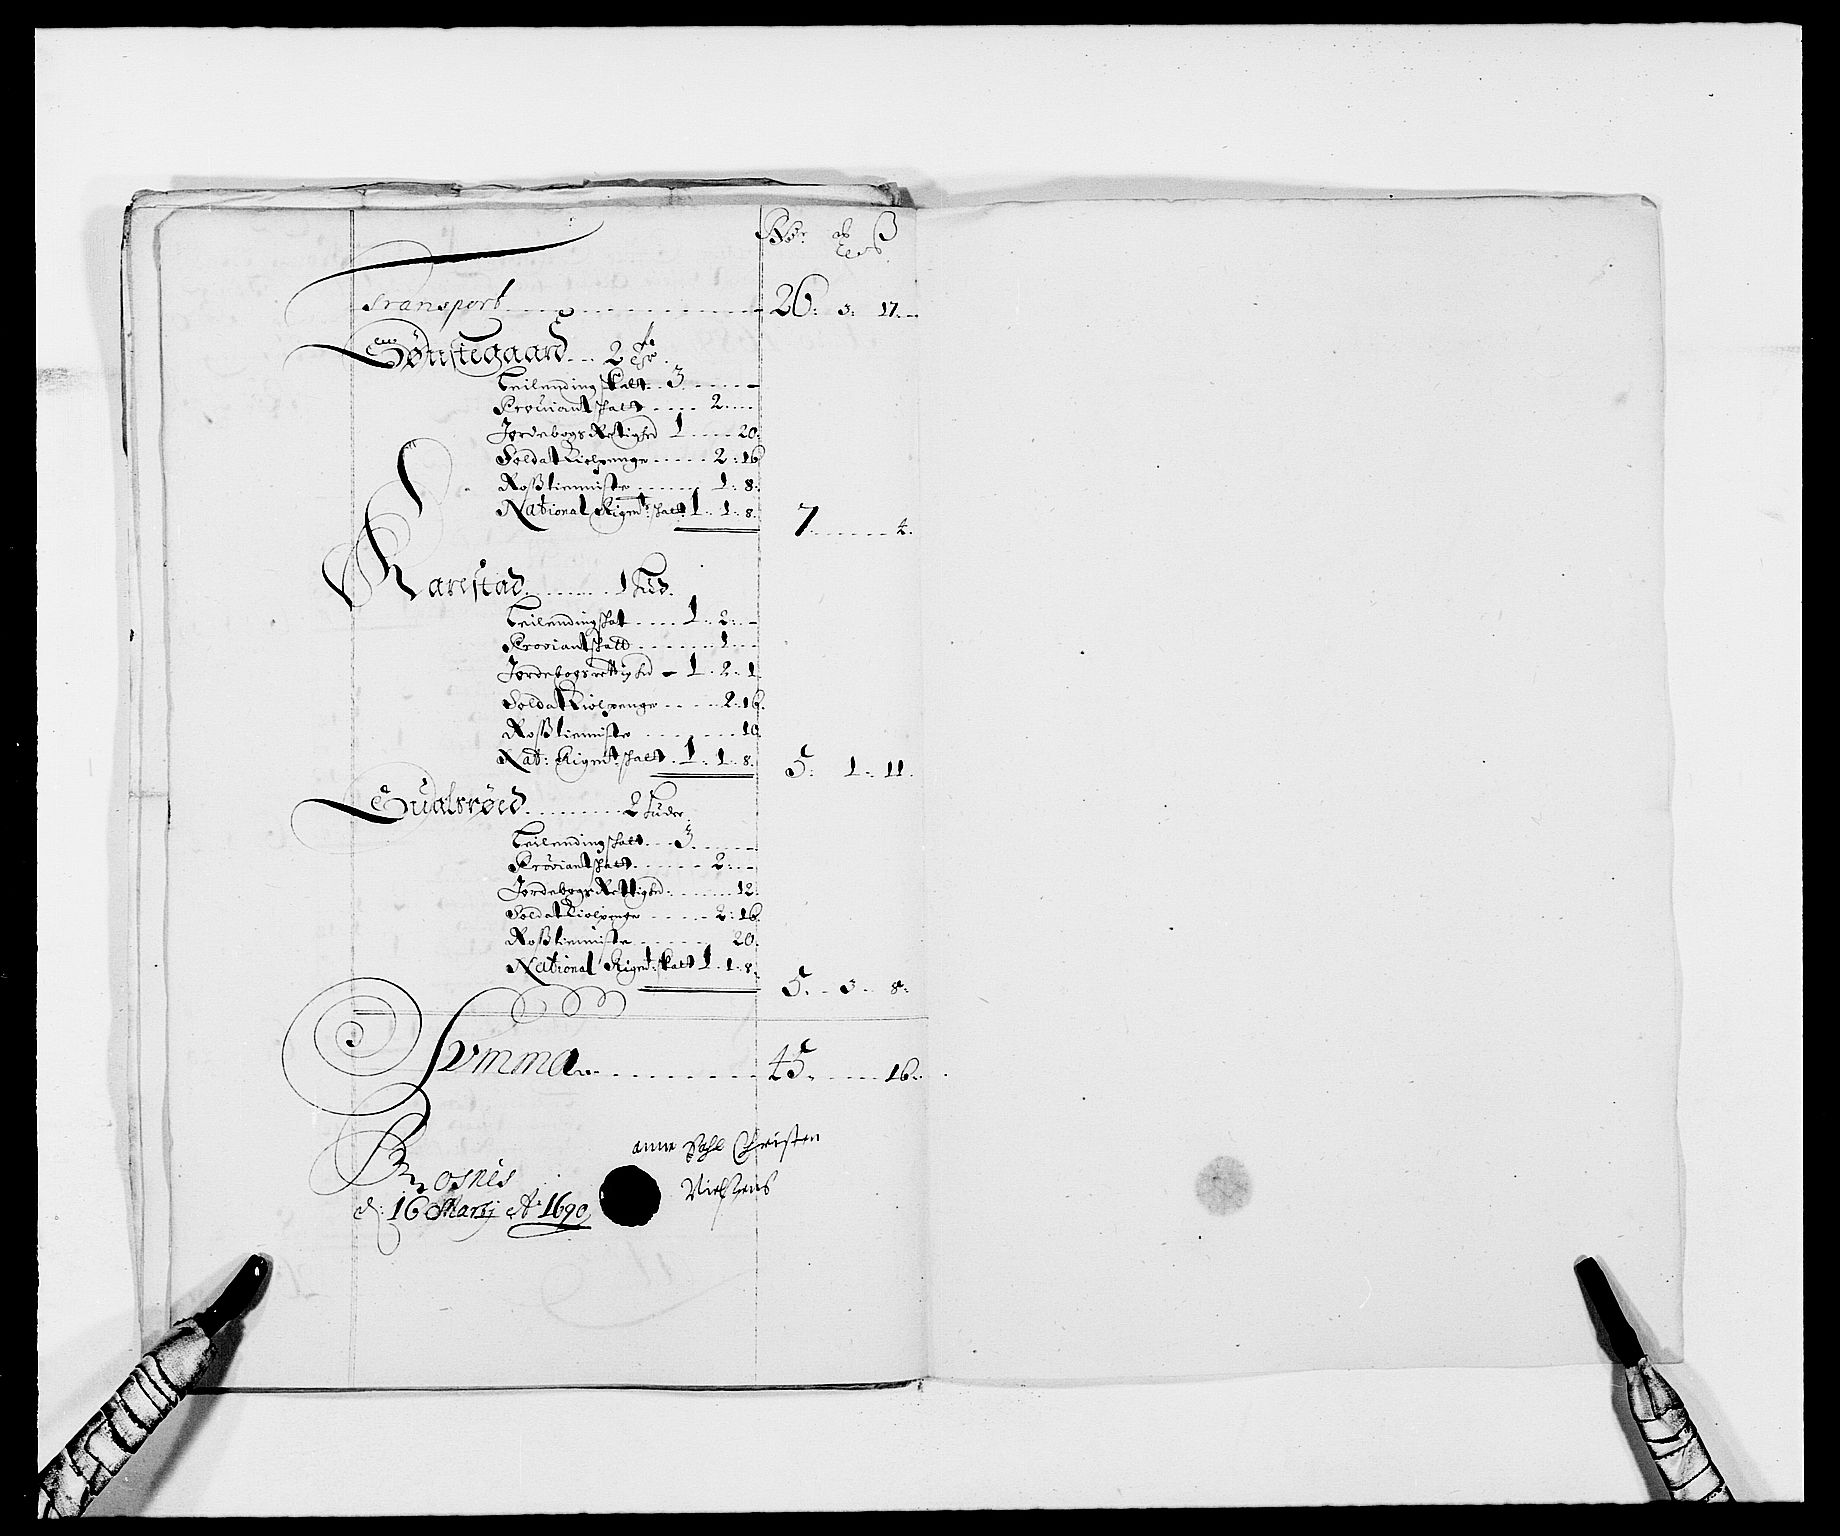 Rdr: ort ß
Transport 26: 3: 17.
Sønstegaard 2
Leilending skatt 3
Proviant skatt 2
Jordebogs Rettighed 1 20
Soldat Kiolpenge 2: 16
Roßtienniste 1: 8
National Rigmt: skatt 1: 1: 8. 7 4.
Karlstad 1 hud
Leilendingskat 1: 2:
Proviantskatt 1
Jordebogsrettighed 1: 2: 1
Soldat Kiolpenge 2: 16
Roßtienniste 10
Nat: Rigmt: skatt 1: 1: 8. 5: 1: 11.
2 huder
Leilendingskatt 3
Proviantskatt 2:
Jordebogs Rettighed 12
Soldat Kiolpenge 2: 16
Roßtienniste 20
National Rigmt: skatt 1: 1: 8. 5: 3: 8.
Summa 45 16.
Rosnes
d: 16 Martij Ao: 1690
anne Christen